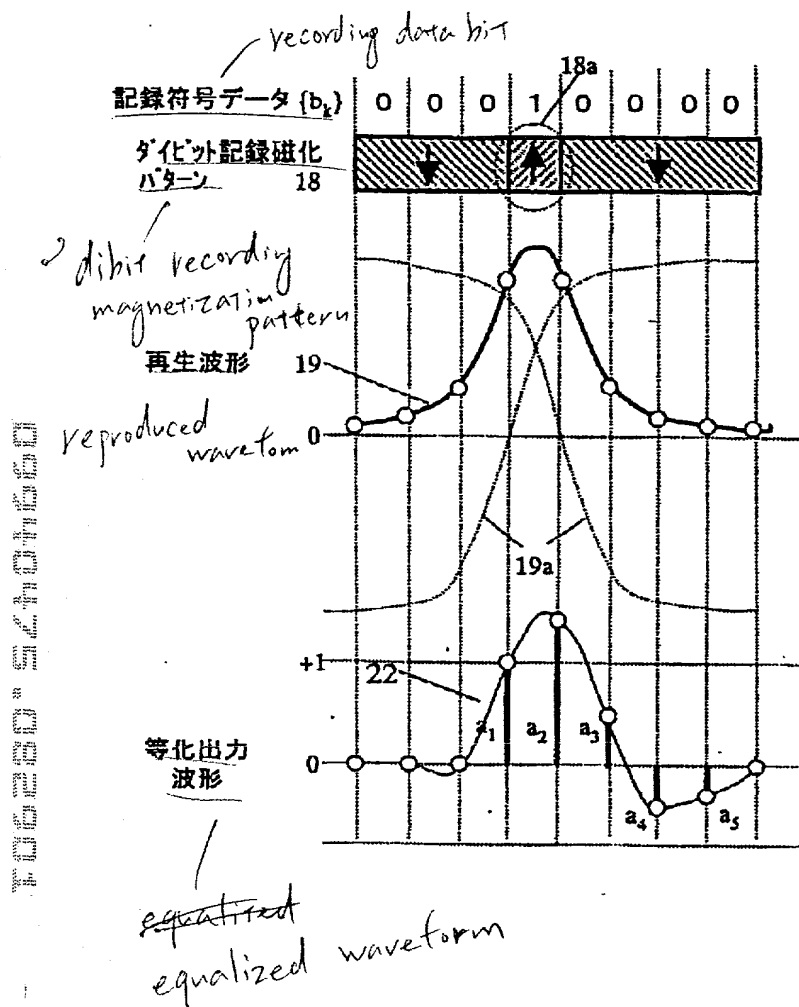 recording data bit
18a
記録符号データ {bk} 0 0 0 1 0 0 0 0
ダイビット記録磁化
パターン 18
dibit recording
magnetization
pattern
再生波形 19
reproduced
wavefom
0
19a
+1
22
a1 a2 a3
等化出力
波形
0
a4 a5
equalized
equalized waveform